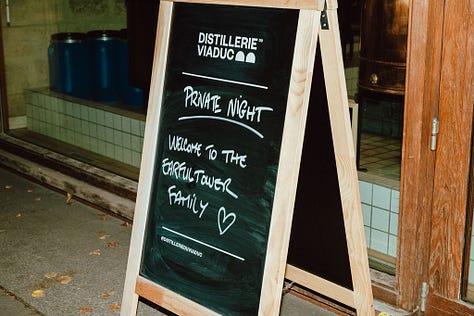 DISTILLERIE
VIADUC
PRIVATE NIGHT
WELCOME TO THE
EARFULTOWER
FAMILY ♡
@DISTILLERIEVIADUC